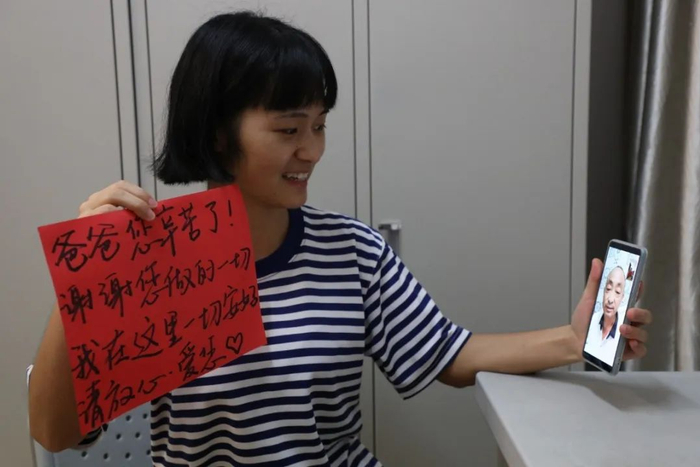 爸爸您辛苦了!
谢谢您做的一切
我在这里一切安好
请放心.爱您♡